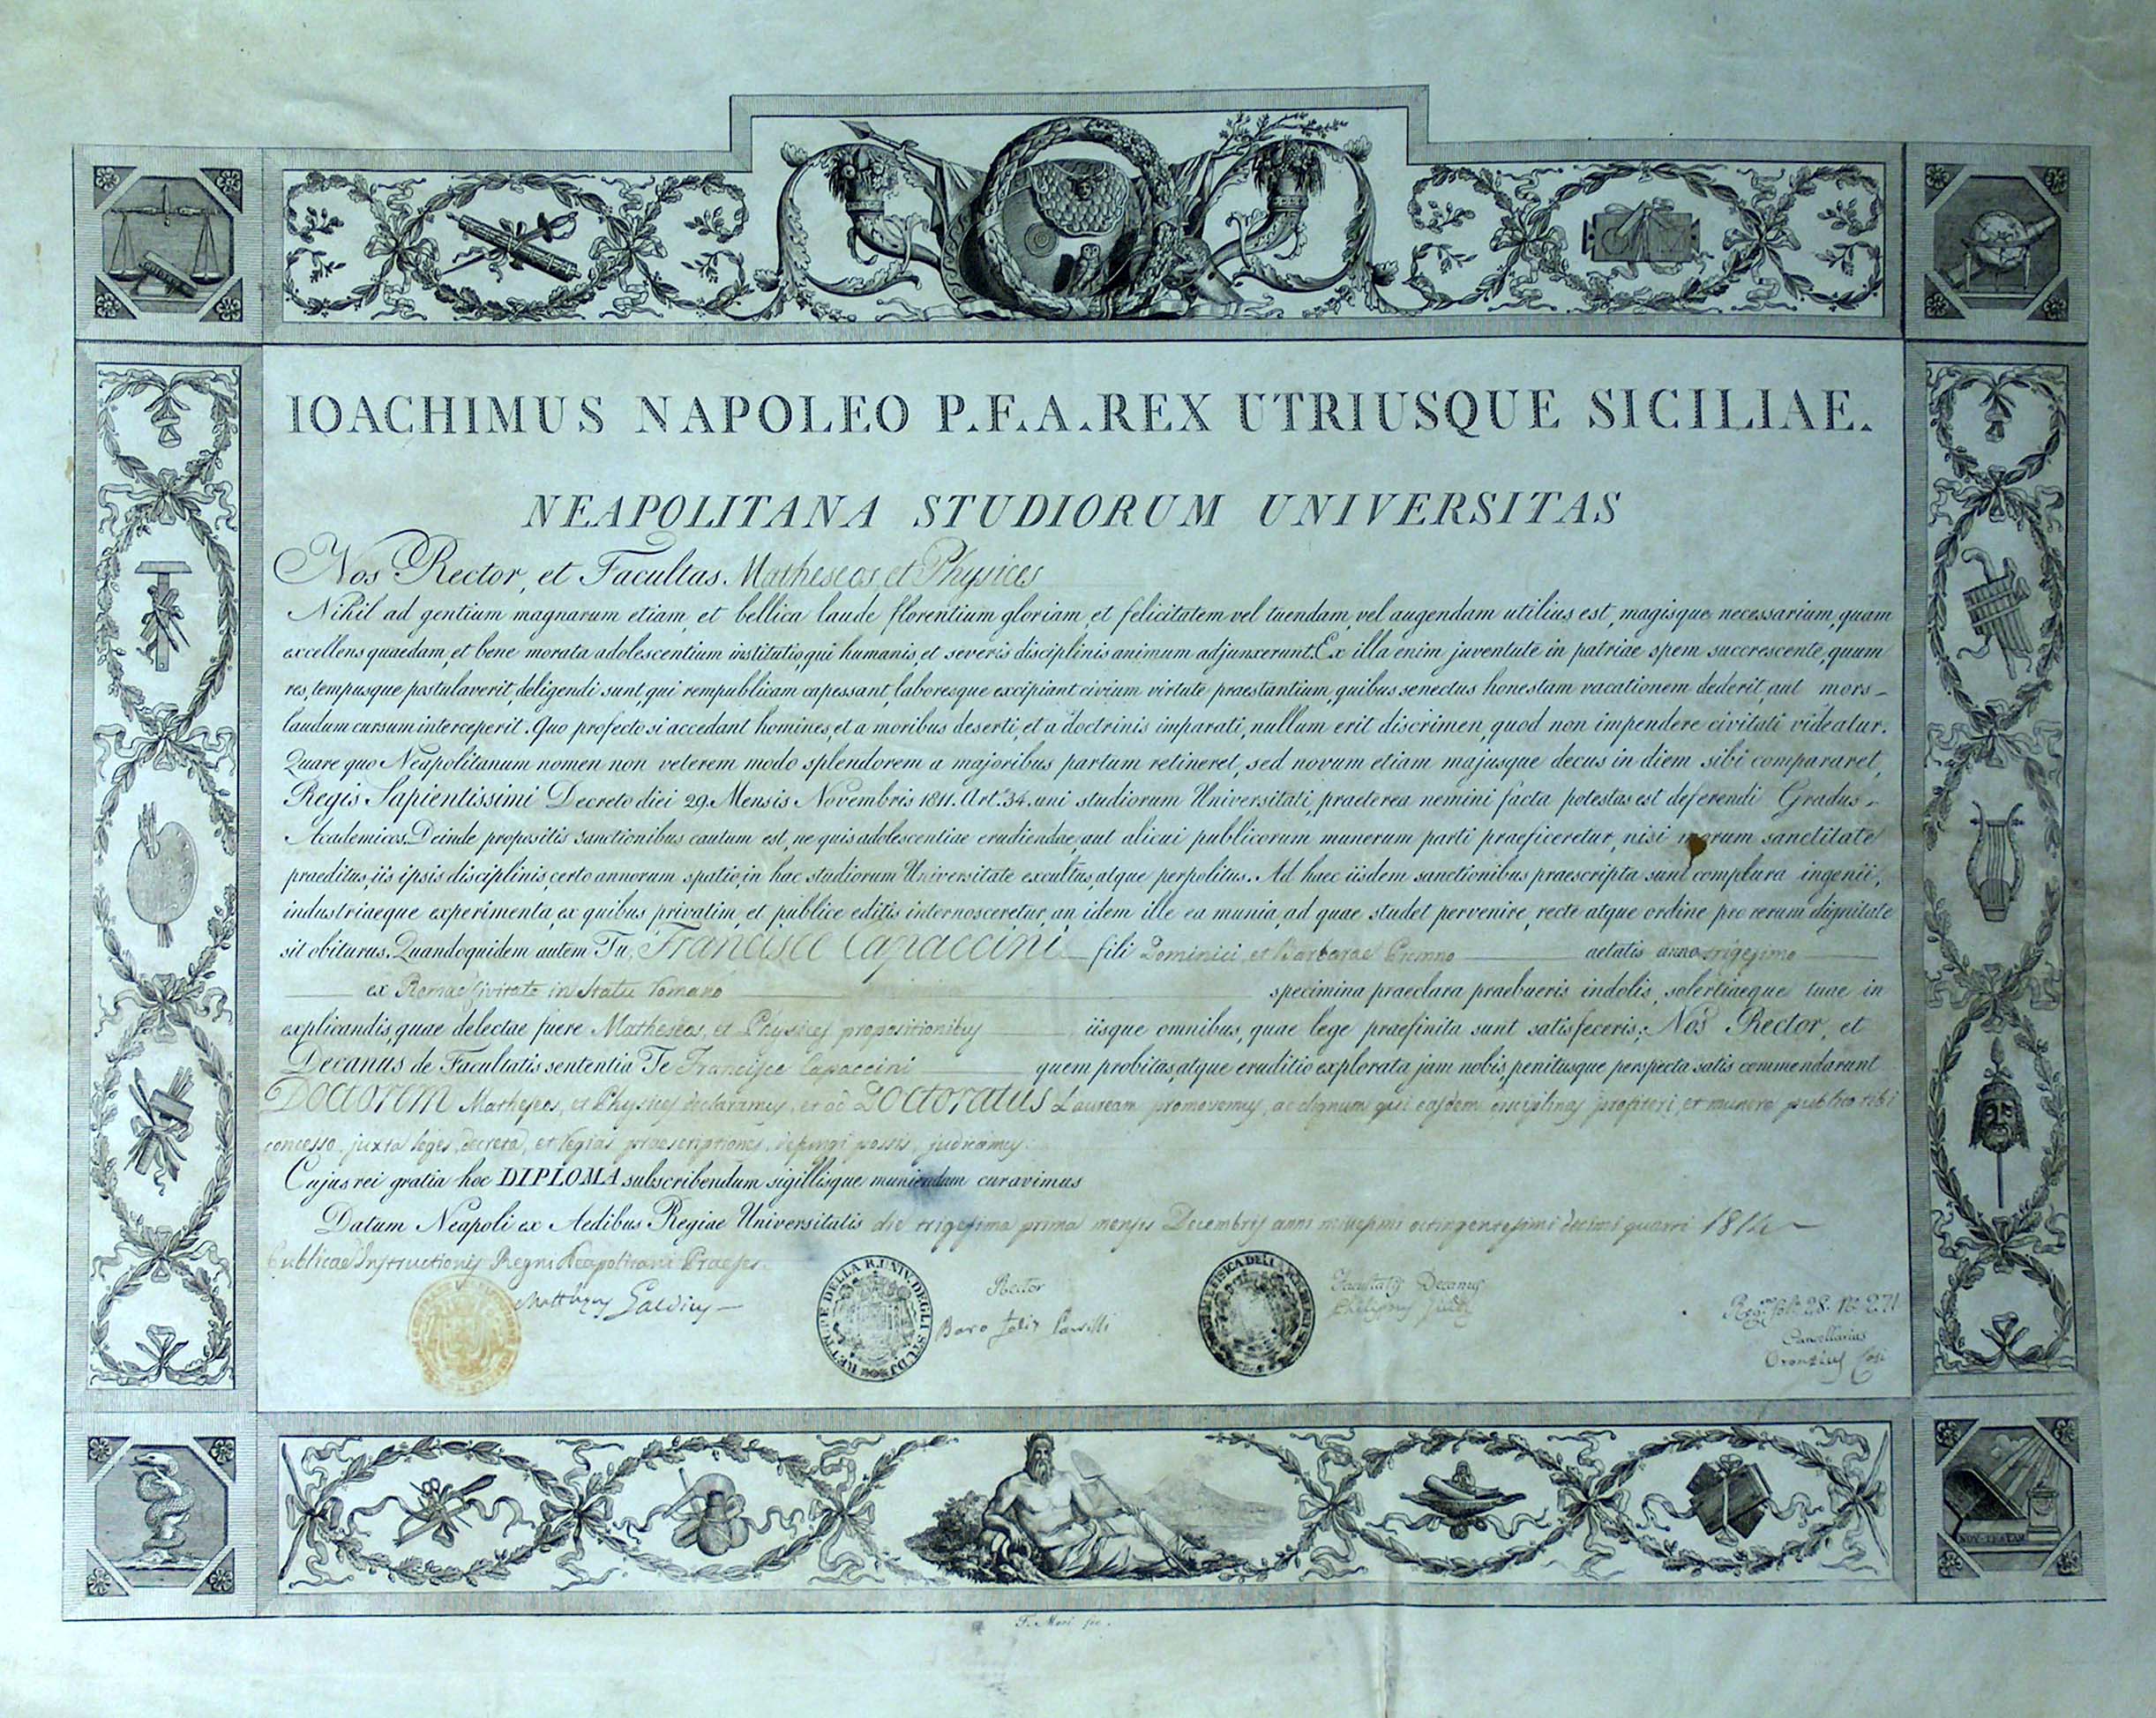 IOACHIMUS NAPOLEO P.F.A.REX UTRIUSQUE SICILIAE.
NEAPOLITANA STUDIORUM UNIVERSITAS
Nos Rector, et Facultas Matheseos, et Physices
Nihil ad gentium magnarum etiam, et bellica laude florentium gloriam, et felicitatem vel tuendam, vel augendam utilius est, magisque necessarium, quam
excellens quaedam, et bene morata adolescentium institutio, qui humanis, et severis disciplinis animum adjunxerunt. Ex illa enim juventute in patriae spem succrescente, quum
res, tempusque postulaverit, deligendi sunt, qui rempublicam capessant, laboresque excipiant civium virtute praestantium, quibus senectus honestam vacationem dederit, aut mors
laudum cursum interceperit. Quo profecto si accedant homines, et a moribus deserti, et a doctrinis imparati, nullum erit discrimen, quod non impendere civitati videatur.
Quare quo Neapolitanum nomen non veterem modo splendorem a majoribus partum retineret, sed novum etiam majusque decus in diem sibi compararet,
Regis Sapientissimi Decreto diei 29. Mensis Novembris 1811. Art. 34. uni studiorum Universitati, praeterea nemini facta potestas est deferendi Gradus
Academicos. Deinde propositis sanctionibus cautum est, ne quis adolescentiae erudiendae, aut alicui publicorum munerum parti praeficeretur, nisi morum sanctitate
praeditus, iis ipsis disciplinis, certo annorum spatio, in hac studiorum Universitate excultus, atque perpolitus. Ad haec iisdem sanctionibus praescripta sunt complura ingenii,
industriaeque experimenta, ex quibus privatim, et publice editis internosceretur, an idem ille ea munia, ad quae studet pervenire, recte atque ordine pro rerum dignitate
sit obiturus. Quandoquidem autem Tu, Francisce Capaccini fili Dominici, et Barbarae aetatis anno trigesimo
ex Romae Civitate in Statu Romano specimina praeclara praebueris indolis, solertiaeque tuae in
explicandis, quae delectae fuere Matheseos, et Physices propositionibus iisque omnibus, quae lege praefinita sunt satisfeceris; Nos Rector, et
Decanus de Facultatis sententia Te Francisce Capaccini quem probitas, atque eruditio explorata jam nobis, penitusque perspecta satis commendarunt
Doctorem Matheseos, et Physices declaramus, et ad Doctoratus Lauream promovemus, ac dignum qui easdem disciplinas profiteri, et munere publico tibi
concesso, juxta leges, decreta, et regias praescriptiones, defungi possis, judicamus.
Cujus rei gratia hoc DIPLOMA subscribendum sigillisque muniendum curavimus
Datum Neapoli ex Aedibus Regiae Universitatis die trigesima prima mensis Decembris anni millesimi octingentesimi decimi quarti 1814
Publicae Instructionis Regni Neapolitani Praeses
Matthaeus Galdius
RETTORE DELLA R. UNIV. DEGLI STUDJ
Rector
Baro Felix
Facultatis Decanus
Reg. fol. 28. N. 271
Cancellarius
Orontius
NOV. TESTAM
F. Mori fec.